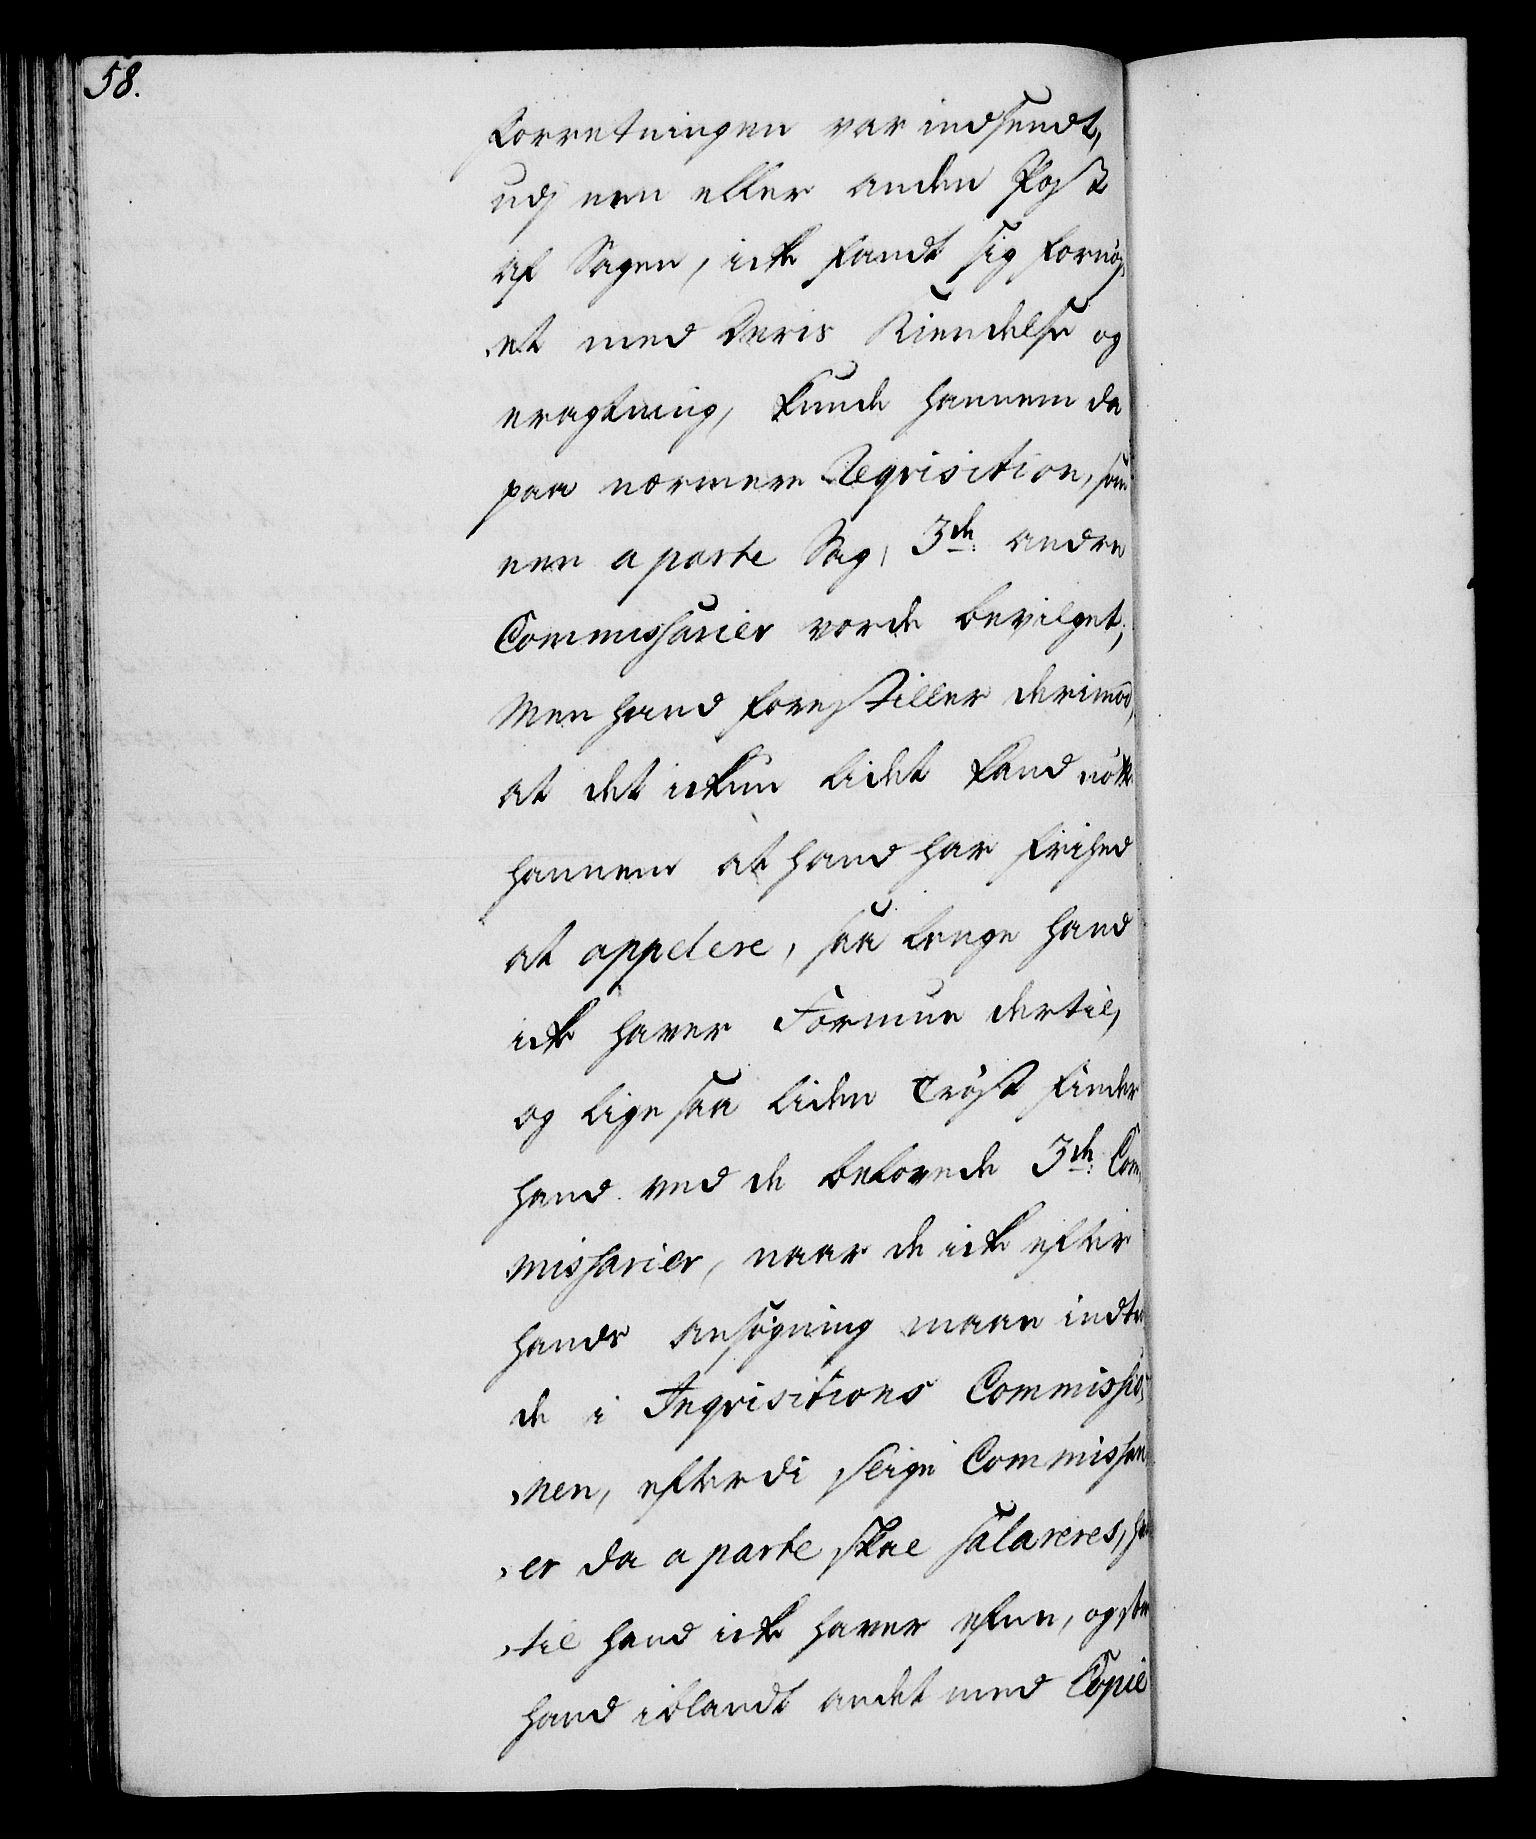 58.
Forretningen var indsendt,
udj een eller anden Post
af Sagen, icke fandt sig fornøy,
,et med deris Kiendelse og
eragtning, kunde hannem da
paa nermere Reqvisition, som
een a parte Sag, 3de andre
Commissarier vorde bevilget;
Men hand forestiller derimod,
at det ickun lidet kand nøtte
hannem at hand har frihed
at appelere, saa lenge hand
icke haver Formue dertil,
og lige saa liden Trøst finder
hand ved de belovede 3de Com,
missarier, naar de icke efter
hands ansøgning maae indtræ
de i Inqvisitions Commissio,
,nen, efterdi slige Commissari
,er da a parte skal salareres,
,til hand icke haver efne, og
hand iblandt andet med Copie